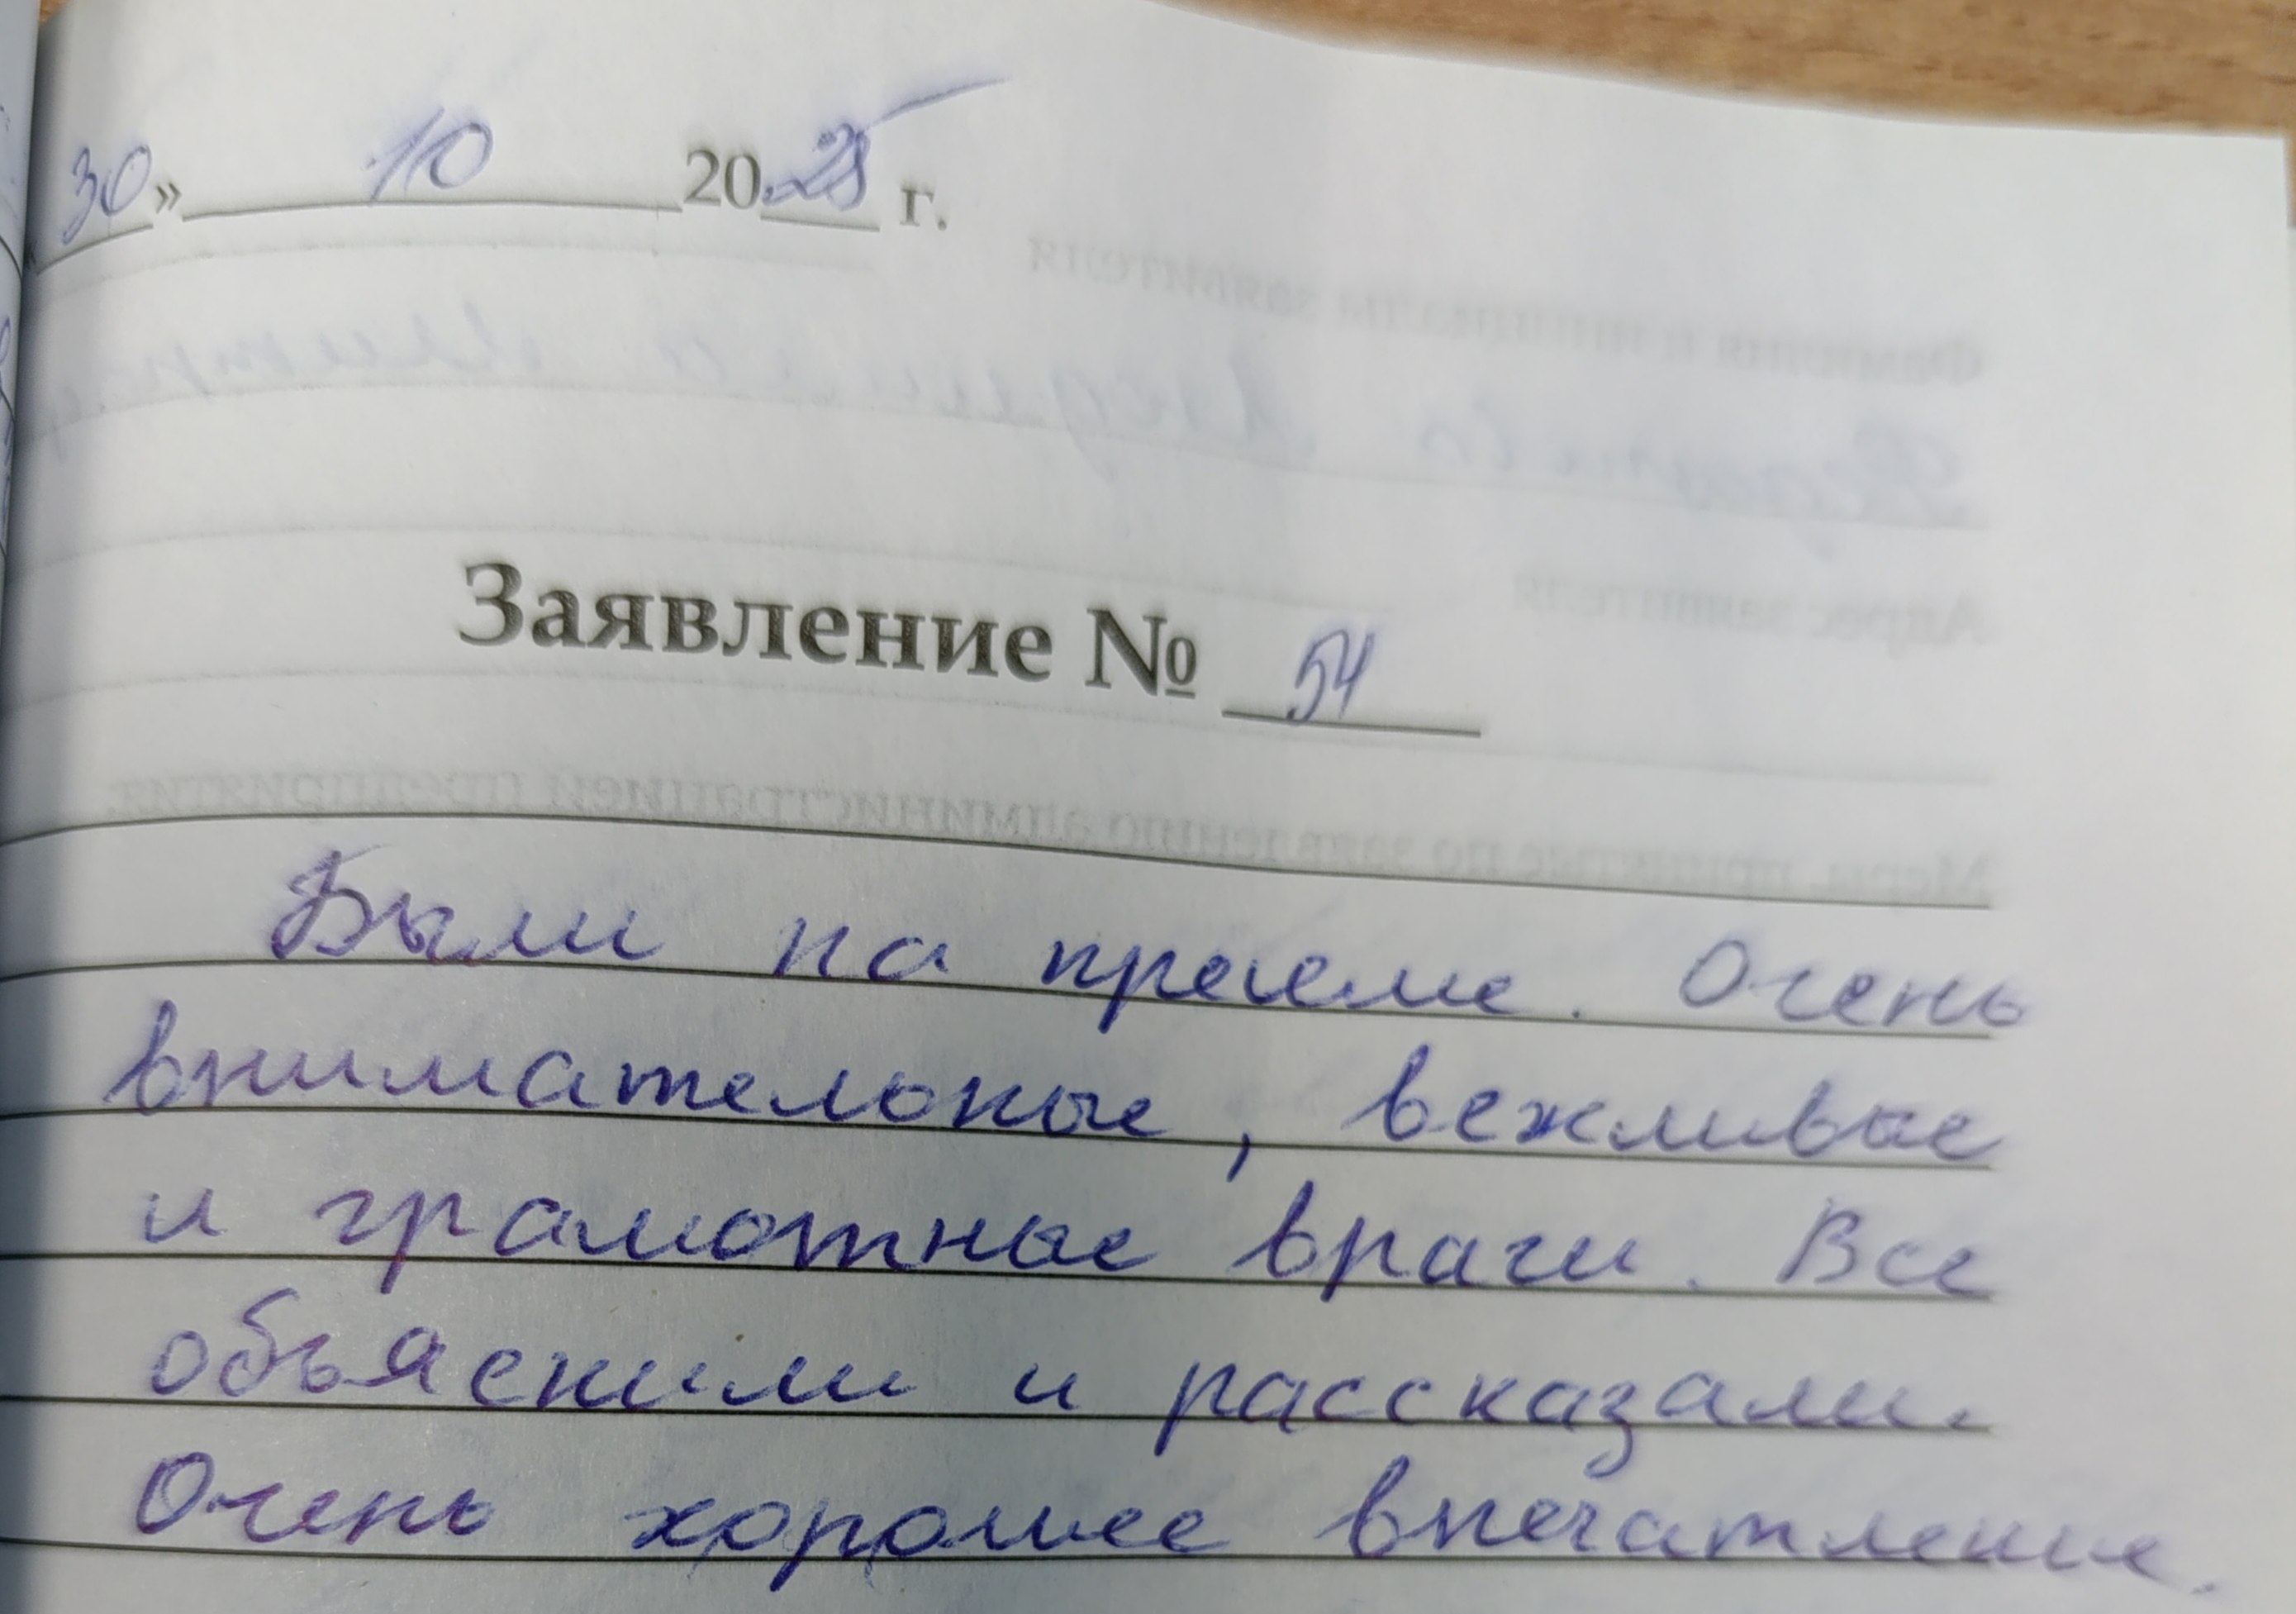 30» 10 2025 г.
Заявление № 54
Были на приеме. Очень
внимательные, вежливые
и грамотные врачи. Все
объяснили и рассказали.
Очень хорошее впечатление.